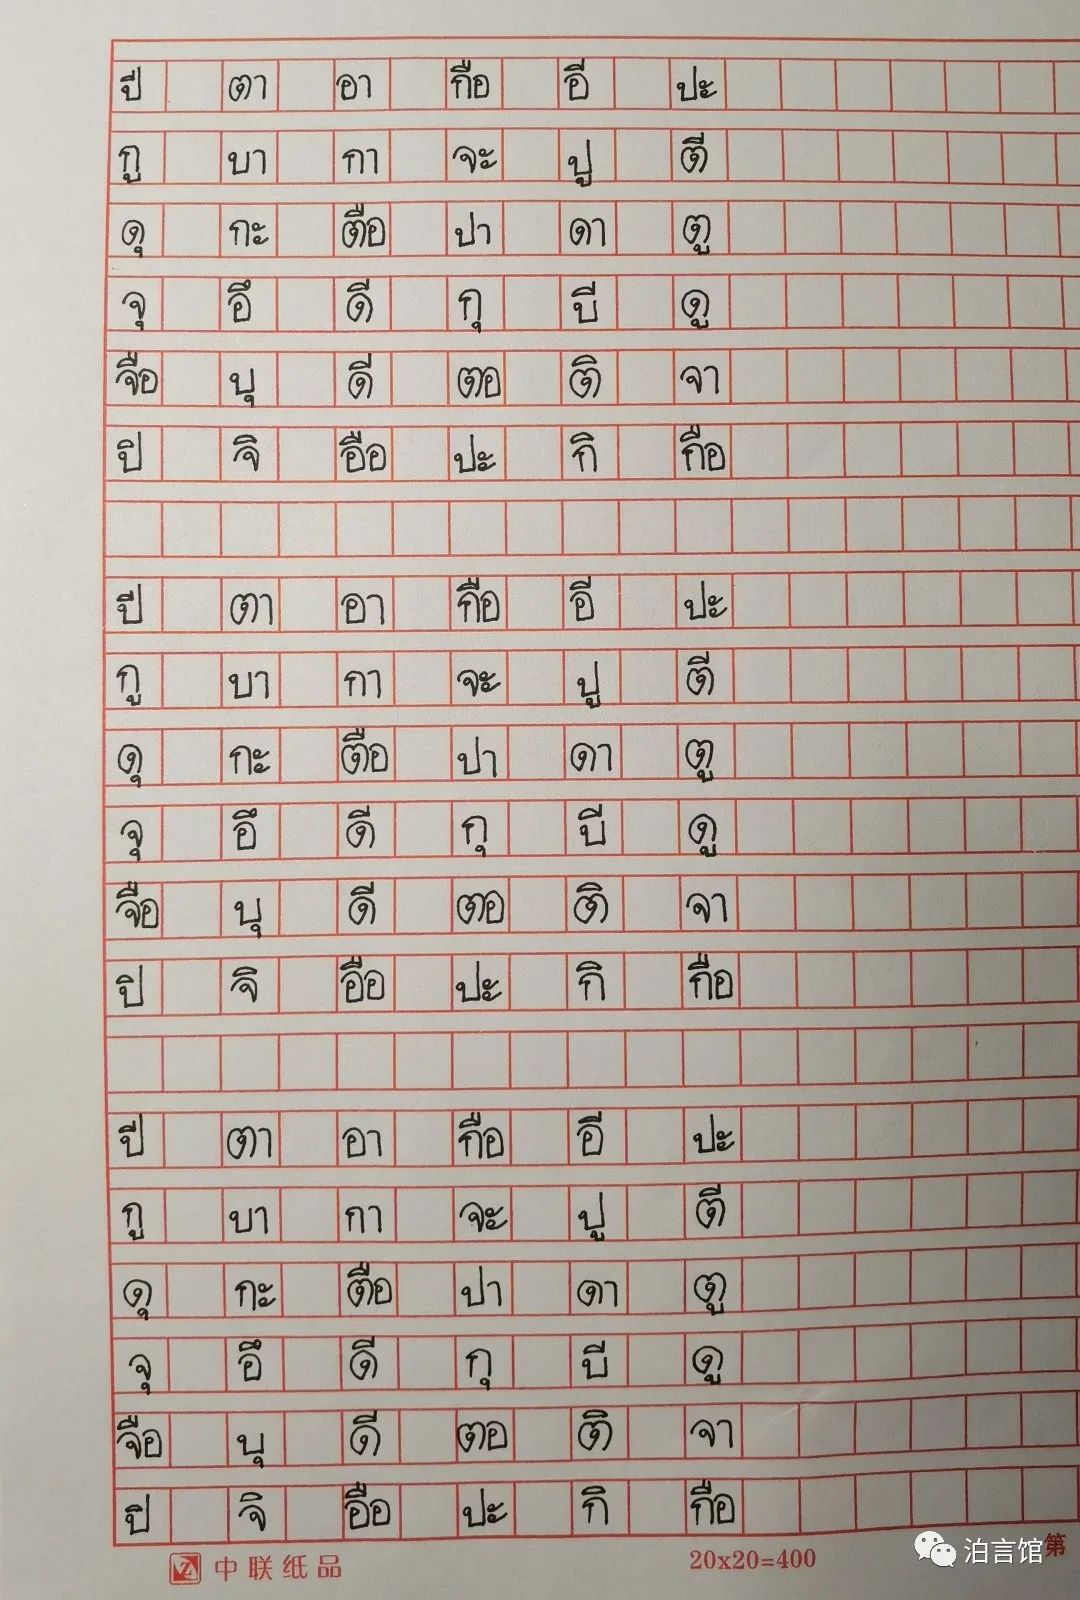 ปี ตา อา กือ อี ปะ
กู บา กา จะ ปู ตี
ดุ กะ ตือ ปา ดา ตู
จุ อึ ดี กุ บี ดู
จือ บุ ดี ตอ ติ จา
ปิ จิ อือ ปะ กิ กือ
ปี ตา อา กือ อี ปะ
กู บา กา จะ ปู ตี
ดุ กะ ตือ ปา ดา ตู
จุ อึ ดี กุ บี ดู
จือ บุ ดี ตอ ติ จา
ปิ จิ อือ ปะ กิ กือ
ปี ตา อา กือ อี ปะ
กู บา กา จะ ปู ตี
ดุ กะ ตือ ปา ดา ตู
จุ อึ ดี กุ บี ดู
จือ บุ ดี ตอ ติ จา
ปิ จิ อือ ปะ กิ กือ
中联纸品 20x20=400 第
泊言馆